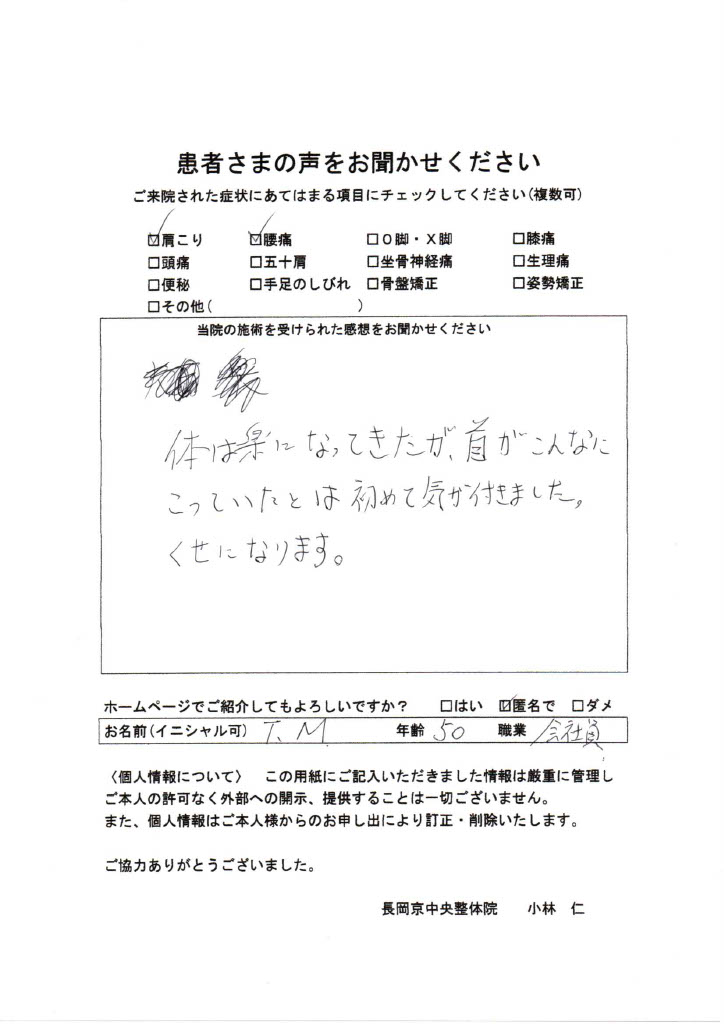 患者さまの声をお聞かせください
ご来院された症状にあてはまる項目にチェックしてください(複数可)
☑肩こり ☑腰痛 □O脚・X脚 □膝痛
□頭痛 □五十肩 □坐骨神経痛 □生理痛
□便秘 □手足のしびれ □骨盤矯正 □姿勢矯正
□その他( )
当院の施術を受けられた感想をお聞かせください
体は楽になってきたが、首がこんなに
こっていたとは初めて気が付きました。
くせになります。
ホームページでご紹介してもよろしいですか? □はい ☑匿名で □ダメ
お名前(イニシャル可) T.M 年齢 50 職業 会社員
〈個人情報について〉 この用紙にご記入いただきました情報は厳重に管理し
ご本人の許可なく外部への開示、提供することは一切ございません。
また、個人情報はご本人様からのお申し出により訂正・削除いたします。
ご協力ありがとうございました。
長岡京中央整体院 小林 仁